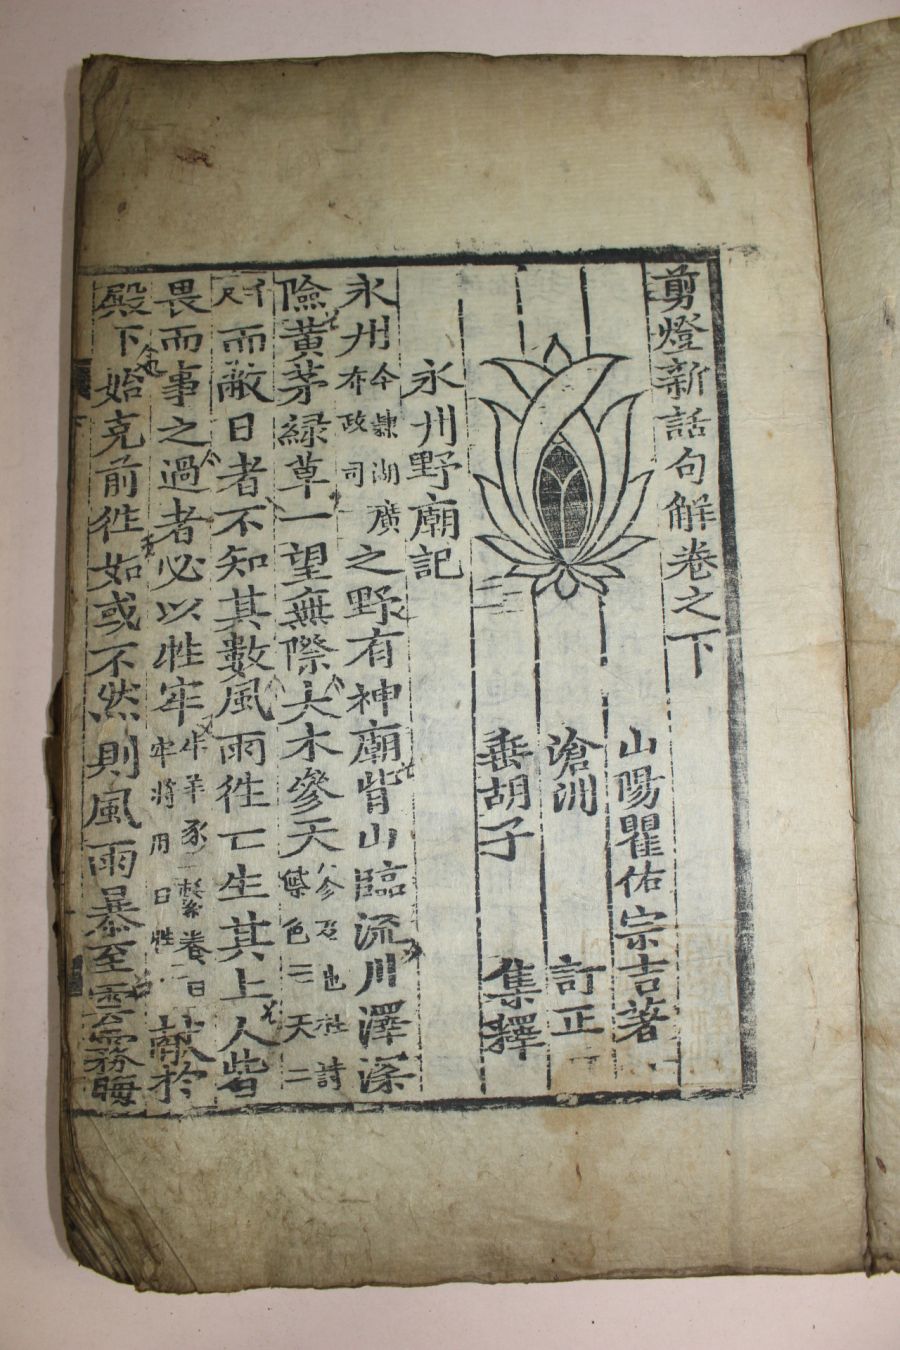 剪燈新話句解卷之下
山陽瞿佑宗吉著
滄洲 訂正
垂胡子 集釋
永州野廟記
永州今隷湖廣布政司之野有神廟背山臨流川澤深
險黃茅綠草一望無際大木參天
而敝日者不知其數風雨徃亡生其上人皆
畏而事之過者必以牲牢牛羊豕曰牢將用曰牲獻於
殿下始克前徃如或不然則風雨暴至雲霧晦